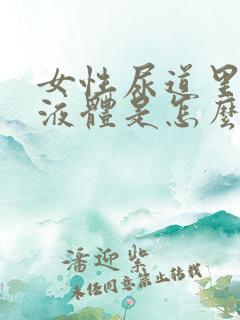 女性尿道里
液體是怎麼
潘迎紫
未经同意禁止转载